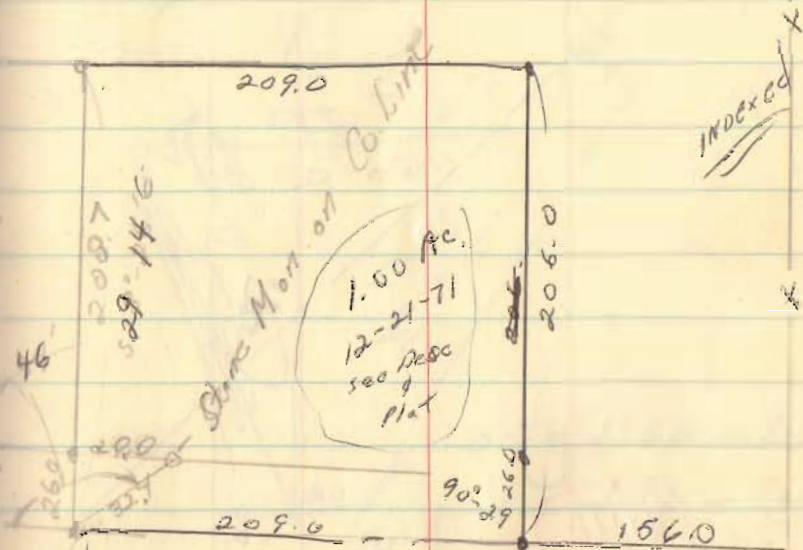 209.0
INDEXED
Stone Mon. on Co. Line
208.7
1.00 Ac.
12-21-71
see Desc
&
Plat
206.0
46
26.0
32.7
90° 29
26.0
209.0
156.0